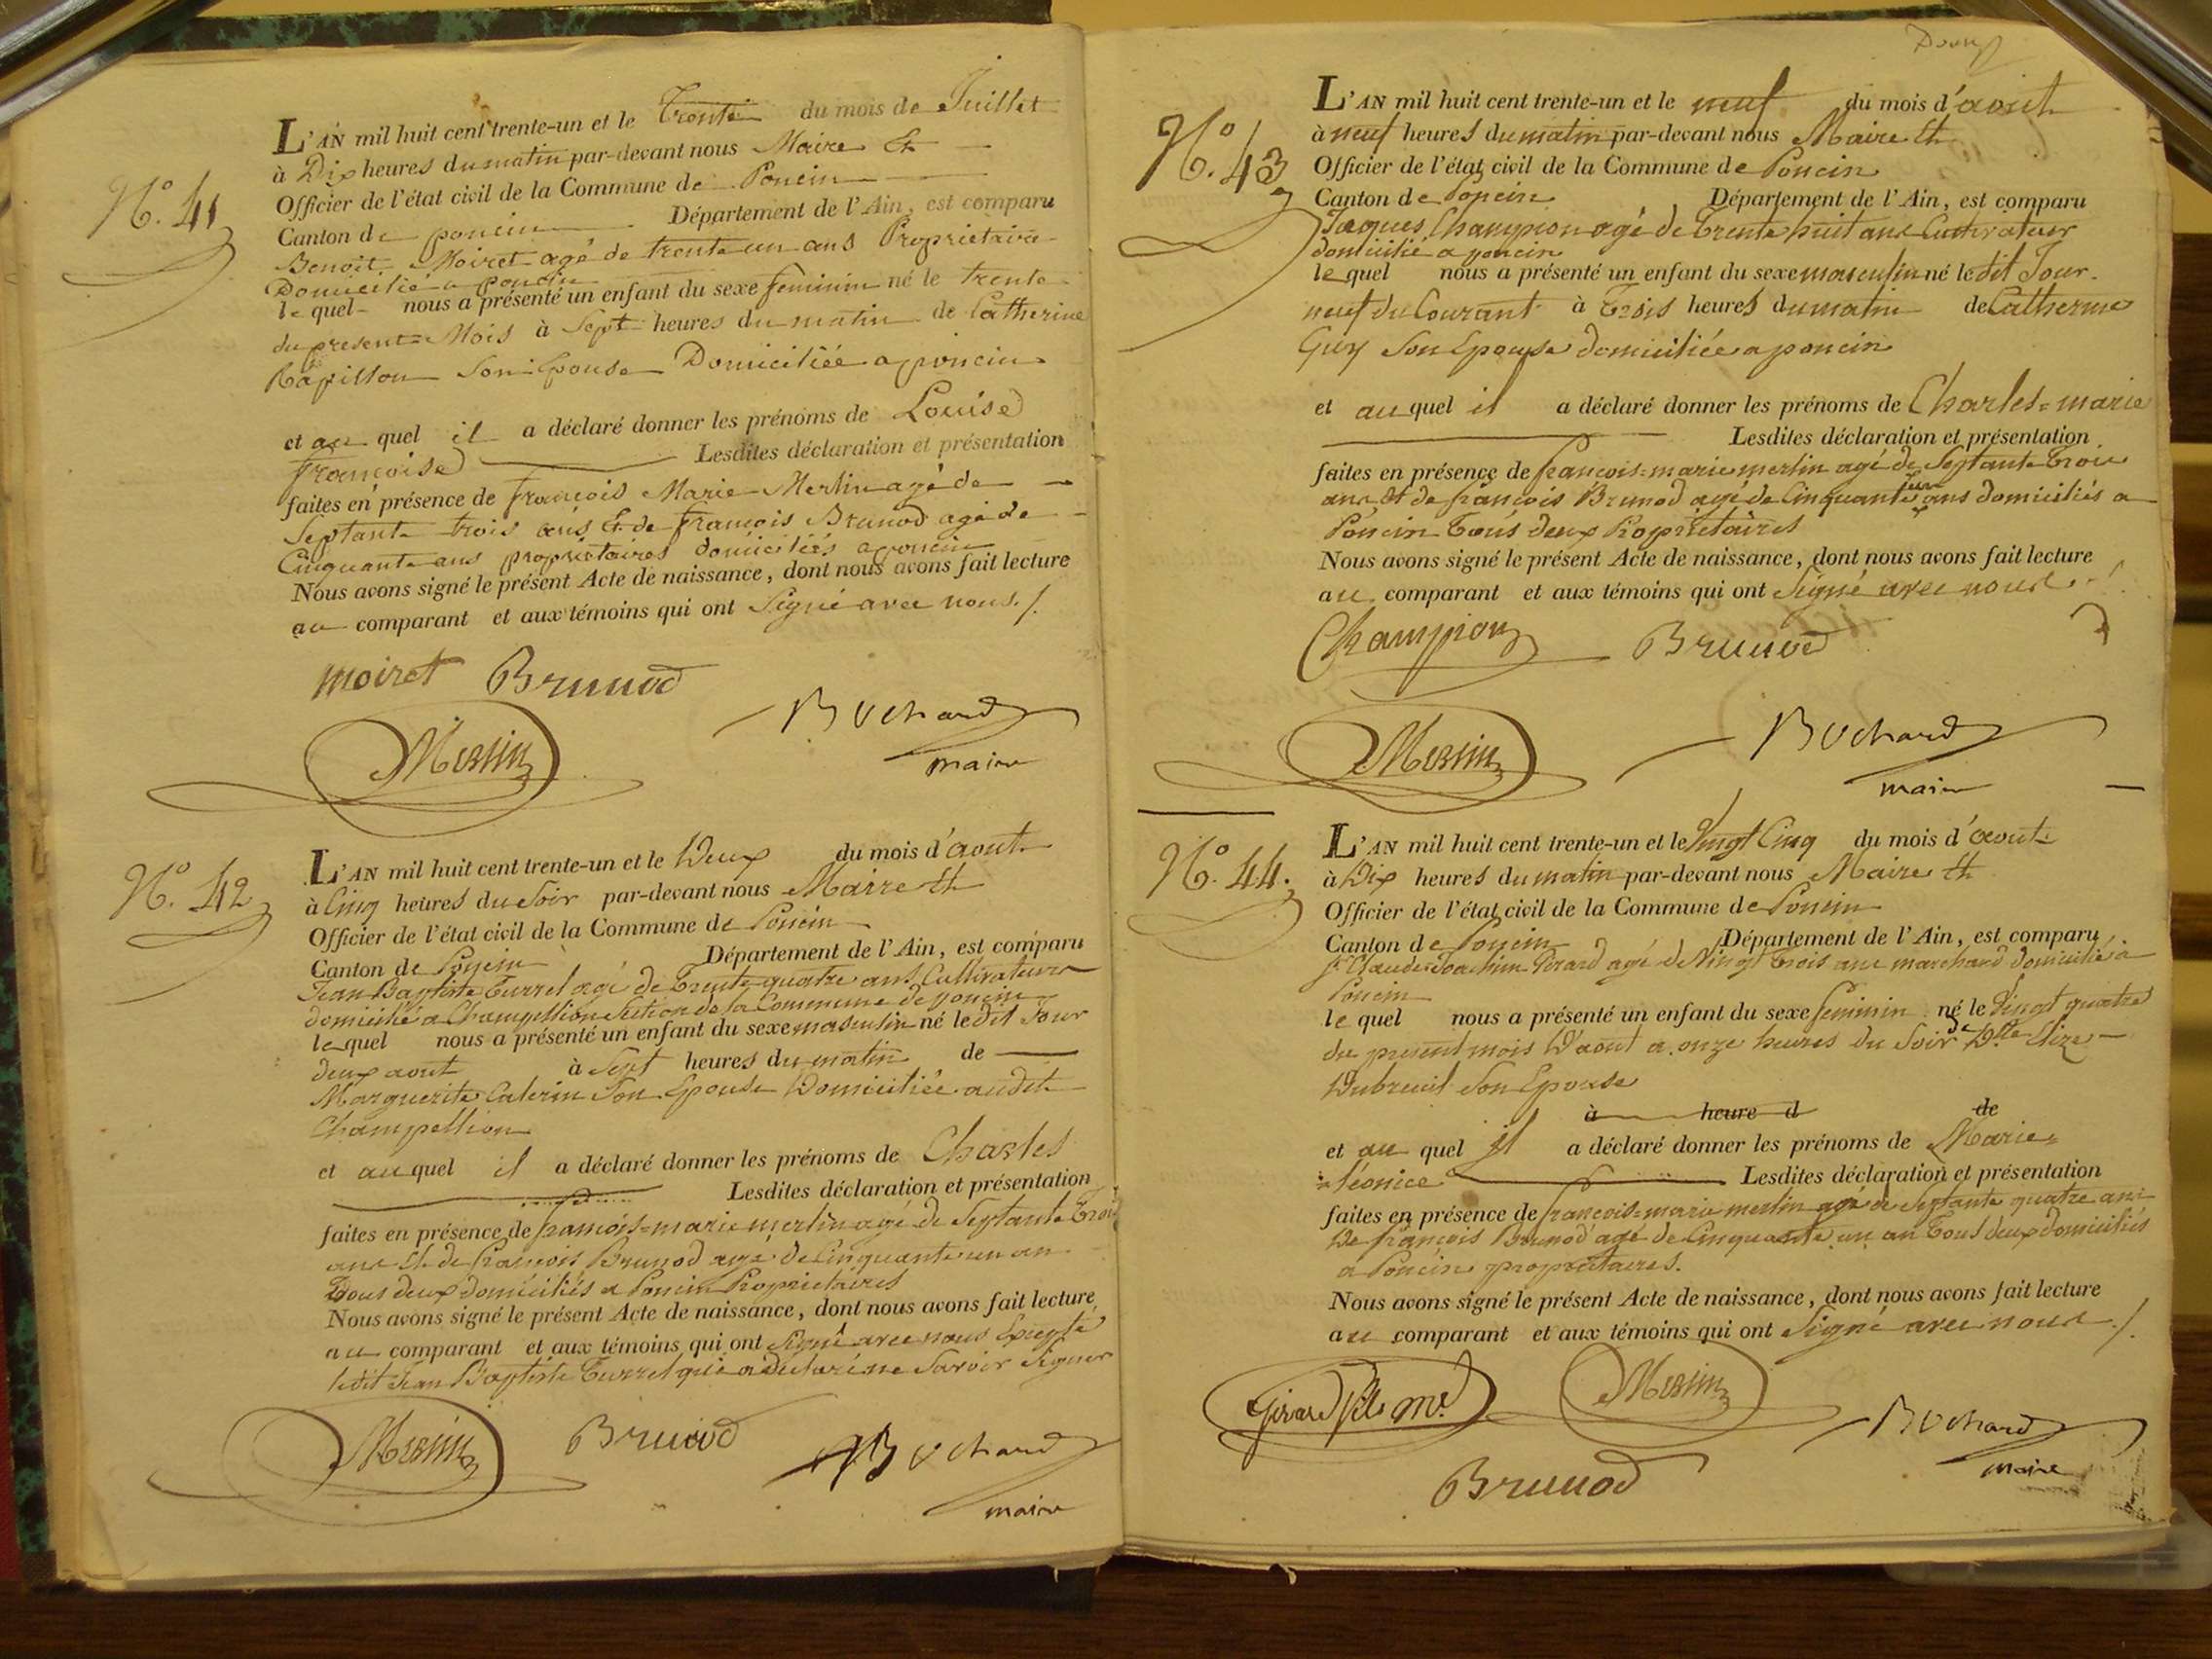 N.º 41
L'AN mil huit cent trente-un et le Trente du mois de Juillet
à Dix heures du matin par-devant nous Maire Et
Officier de l'état civil de la Commune de Poncin
Canton de poncin Département de l'Ain, est comparu
Benoit Moiret agé de trente un ans Propriétaire
Domicilié a poncin
le quel nous a présenté un enfant du sexe feminin né le trente
du present Mois à Sept heures du matin de Catherine
Rapillon Son Epouse Domiciliée a poncin
et au quel il a déclaré donner les prénoms de Louise
françoise Lesdites déclaration et présentation
faites en présence de françois Marie Merlin agé de
Septante trois ans Et de francois Brunod agé de
Cinquante ans propriétaires domiciliés a poncin
Nous avons signé le présent Acte de naissance, dont nous avons fait lecture
au comparant et aux témoins qui ont Signé avec nous ./.
moiret Brunod
Merlin Bochard
maire
N.º 42
L'AN mil huit cent trente-un et le Deux du mois d'aout
à Cinq heures du Soir par-devant nous Maire et
Officier de l'état civil de la Commune de Poncin
Canton de Poncin Département de l'Ain, est comparu
Jean Baptiste Turrel agé de Trente quatre ans Cultivateur
domicilié a Champellion Section de la Commune de poncin
le quel nous a présenté un enfant du sexe masculin né le dit Jour
deux aout à Sept heures du matin de
Marguerite Caterin Son Epouse Domiciliée audit
Champellion
et au quel il a déclaré donner les prénoms de Charles
Lesdites déclaration et présentation
faites en présence de francois=marie merlin agé de Septante Trois
ans Et de francois Brunod agé de Cinquante un an
Tous deux domiciliés a Poncin Propriétaires
Nous avons signé le présent Acte de naissance, dont nous avons fait lecture
au comparant et aux témoins qui ont Signé avec nous Excepté
ledit Jean Baptiste Turrel qui a déclaré ne Savoir Signer
Merlin Brunod Bochard
maire
N.º 43
L'AN mil huit cent trente-un et le neuf du mois d'aout
à neuf heures du matin par-devant nous Maire et
Officier de l'état civil de la Commune de Poncin
Canton de Poncin Département de l'Ain, est comparu
Jacques Champion agé de Trente huit ans Cultivateur
domicilié a poncin
le quel nous a présenté un enfant du sexe masculin né le dit Jour
neuf du Courant à Trois heures du matin de Catherine
Guy Son Epouse domiciliée a poncin
et au quel il a déclaré donner les prénoms de Charles=marie
Lesdites déclaration et présentation
faites en présence de francois=marie merlin agé de Septante Trois
ans et de francois Brunod agé de Cinquante un ans domiciliés a
Poncin Tous deux Propriétaires
Nous avons signé le présent Acte de naissance, dont nous avons fait lecture
au comparant et aux témoins qui ont Signé avec nous ./.
Champion Brunod
Merlin Bochard
maire
N.º 44.
L'AN mil huit cent trente-un et le Vingt Cinq du mois d'aout
à Dix heures du matin par-devant nous Maire et
Officier de l'état civil de la Commune de Poncin
Canton de Poncin Département de l'Ain, est comparu
Sr. Claude=Joachim Girard agé de Vingt Trois ans marchand domicilié a
Poncin
le quel nous a présenté un enfant du sexe feminin né le Vingt quatre
du present mois D'aout a onze heures du Soir de Dlle Elize
Dubreuil Son Epouse
à heure d de
et au quel il a déclaré donner les prénoms de Marie=
=léonice Lesdites déclaration et présentation
faites en présence de francois=marie merlin agé de Septante quatre ans
De francois Brunod agé de Cinquante un an Tous deux domiciliés
a Poncin propriétaires.
Nous avons signé le présent Acte de naissance, dont nous avons fait lecture
au comparant et aux témoins qui ont Signé avec nous ./.
Girard fils md. Merlin Bochard
maire
Brunod